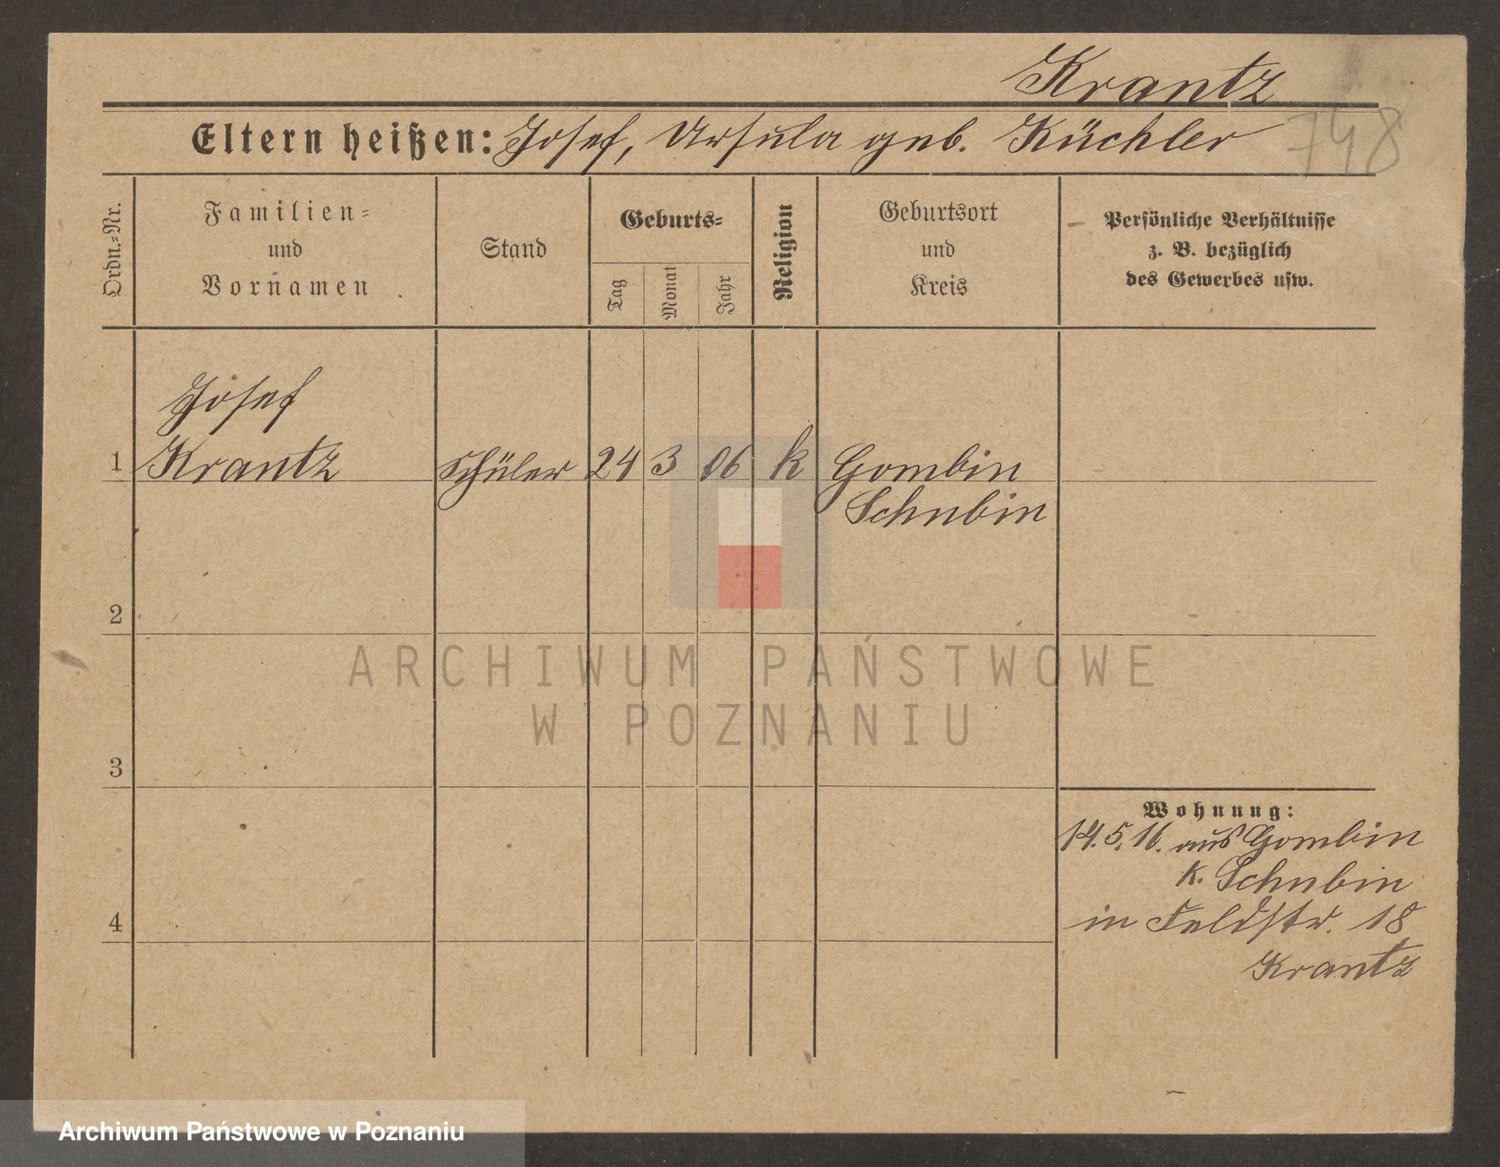 Krantz
748
Eltern heißen: Josef, Ursula geb. Küchler
Ordn.=Nr.
Familien=
und
Vornamen
Stand
Geburts=
Tag
Monat
Jahr
Religion
Geburtsort
und
Kreis
Persönliche Verhältnisse
z. B. bezüglich
des Gewerbes usw.
Josef
1 Krantz Schüler 24 3 06 k Gombin
Schubin
2
3
4
Wohnung:
14.5.16. aus Gombin
K. Schubin
in Feldstr. 18
Krantz
ARCHIWUM PAŃSTWOWE
W POZNANIU
Archiwum Państwowe w Poznaniu